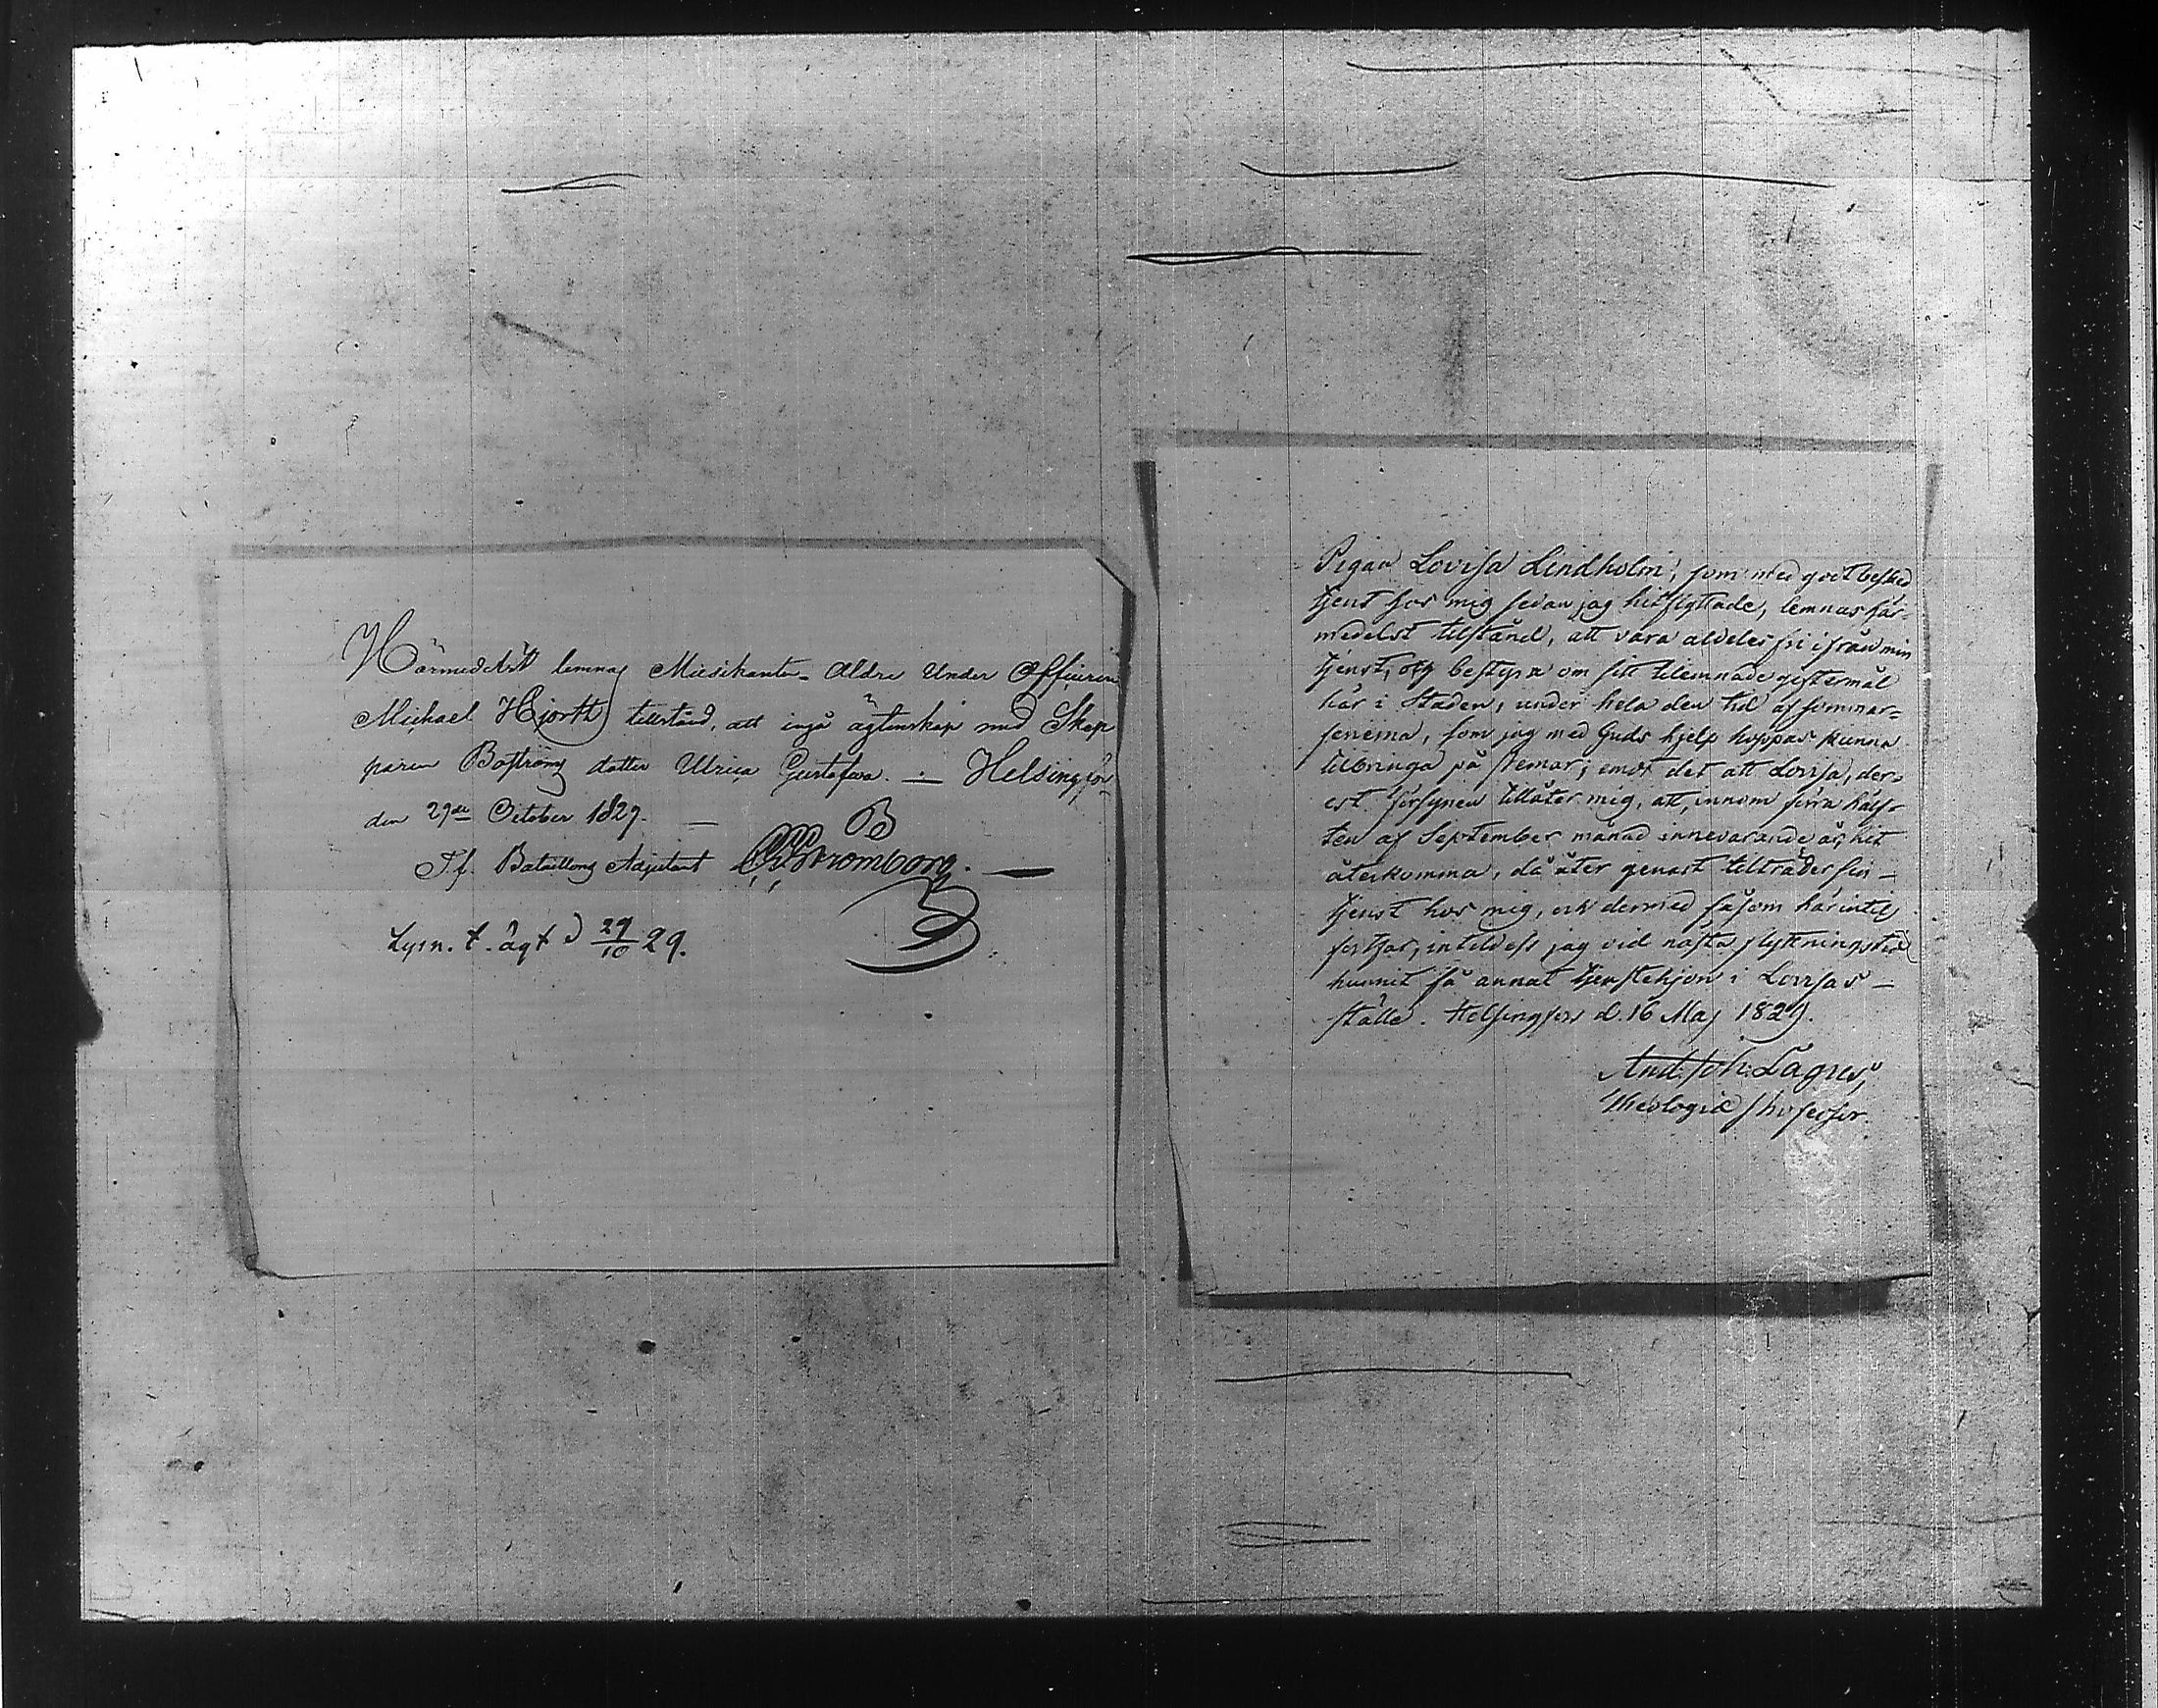 Härmedelst lemnas Musikanten Äldre Under Officeren
Michael Hjorth tillstånd, att ingå ägtenskap med Skep
paren Boströms dotter Ulrica Gustafva. — Helsingfors
den 29de October 1829. —
T.f. Bataillons Adjutant Strömborg. —
Lysn. t. ägt d 29/10 29.
Pigan Lovisa Lindholm, som med godt besked
tjent hos mig sedan jag hitflyttade, lemnas här-
medelst tilstånd, att vara aldeles fri ifrån min
tjenst, och bestyra om sitt tilernnade giftermål
här i Staden, under hela den tid af sommar-
ferierna, som jag med Guds hjelp hoppas kunna
tilbringa på Nemar; emot det att Lovisa, der-
est försynen tillåter mig, att, innom förra hälf-
ten af September månad innevarande år, hit
återkomma, då åter genast tilträder sin
tjenst hos mig, och dermed såsom härintils
fortfar, intildess jag vid nästa flyttningstid
hunnit få annat tjenstehjon i Lovisas
ställe. Helsingfors d. 16 Maj 1829.
And. Joh. Lagus,
Theologiæ Professor.